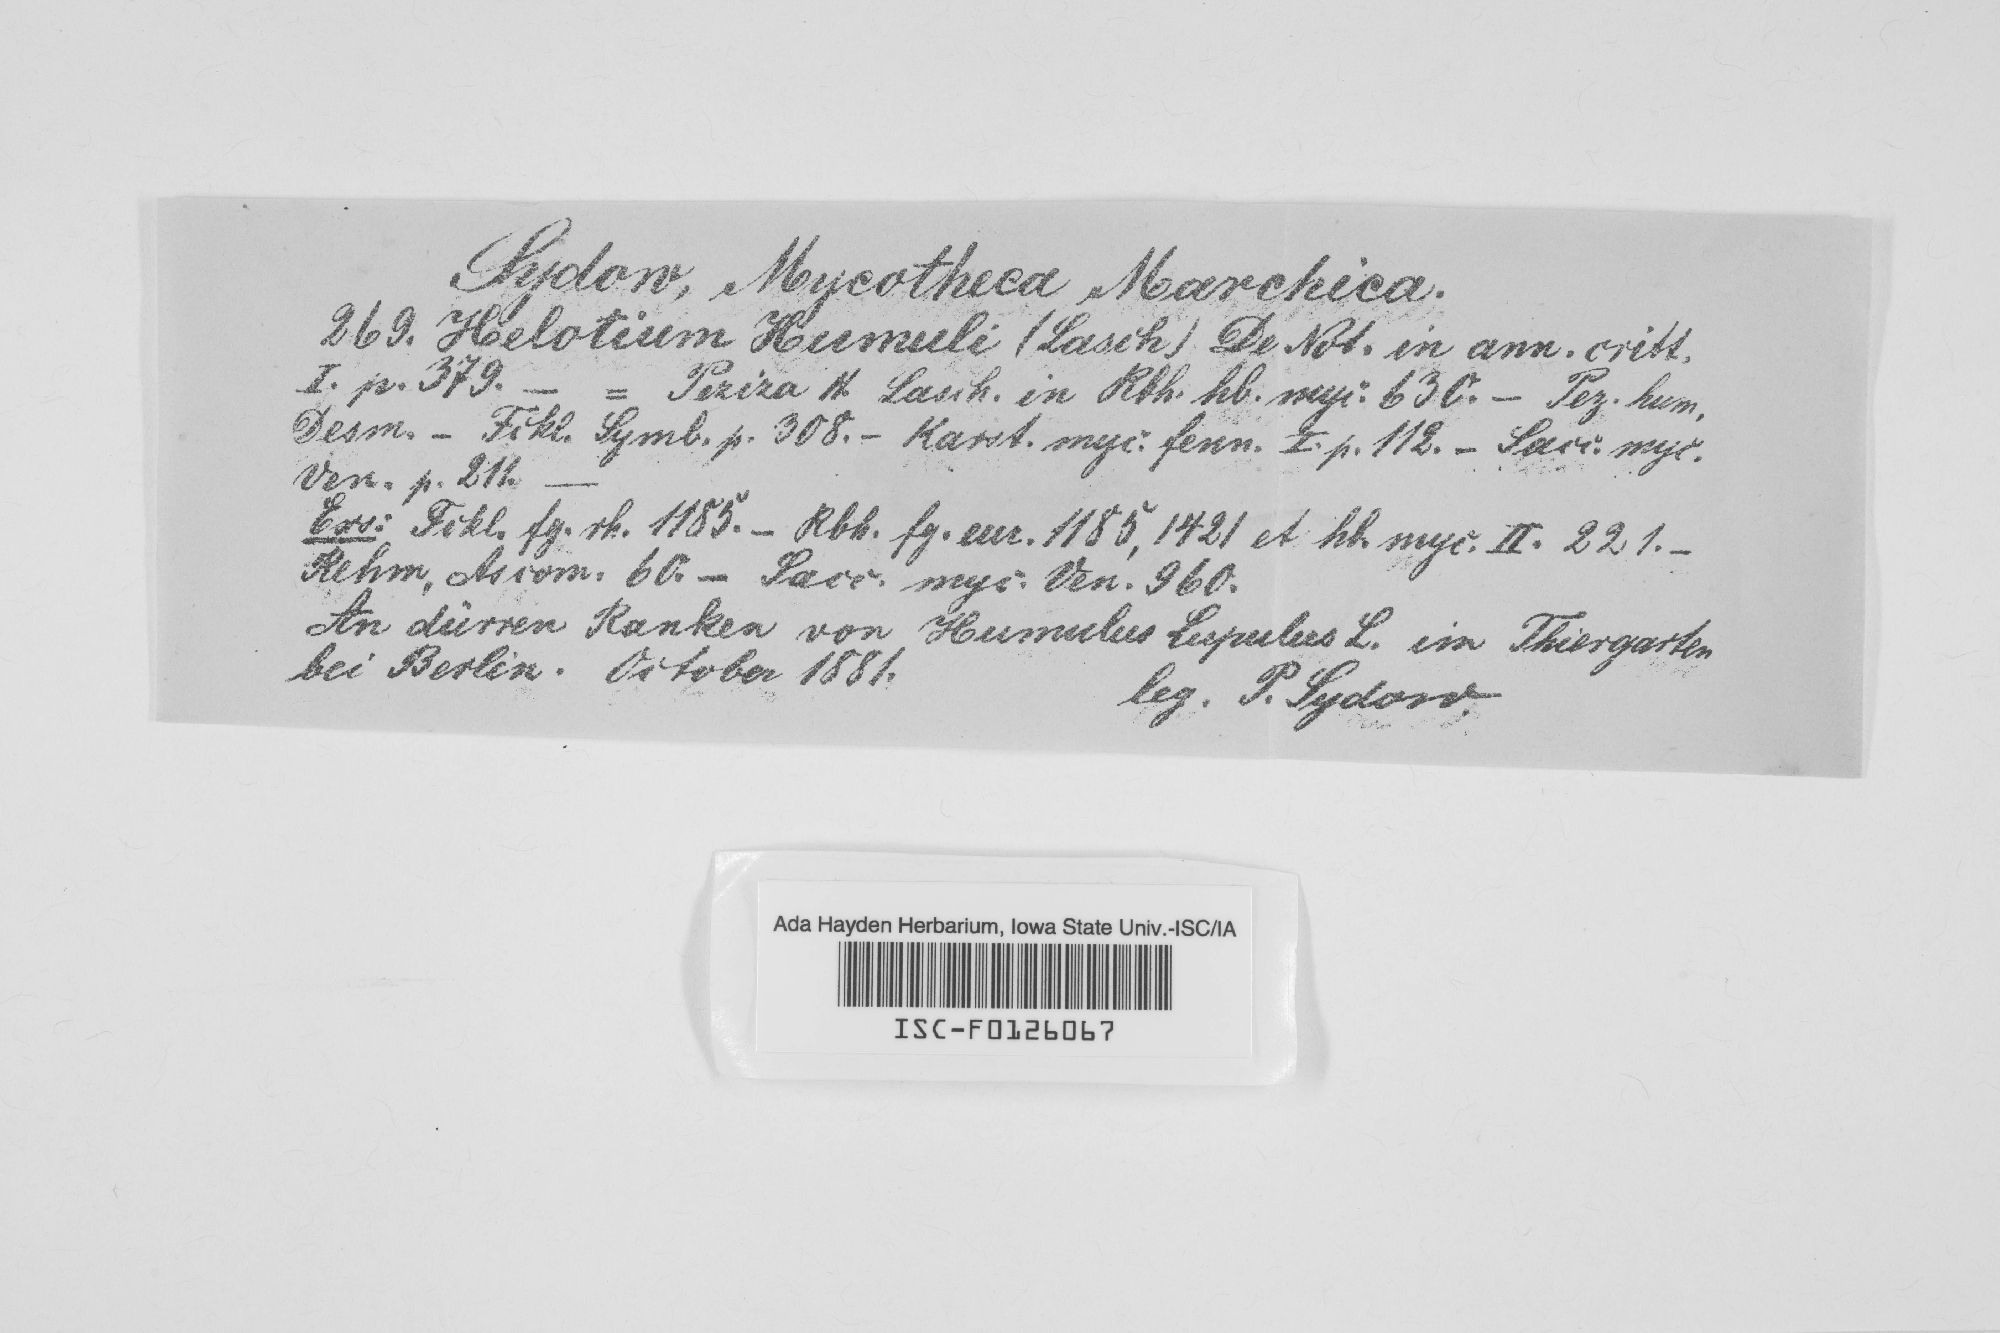 Sydow, Mycotheca Marchica.
269. Helotium Humuli (Lasch) De Not. in ann. critt.
I. p. 379. — = Peziza H. Lasch. in Rbh. hb. myc. 630. — Pez. hum.
Desm. — Fckl. Symb. p. 308. — Karst. myc. fenn. I. p. 112. — Sacc. myc.
Ven. p. 211. —
Exs: Fckl. fg. rh. 1185. — Rbh. fg. eur. 1185, 1421 et hb. myc. II. 221. —
Rehm, Ascom. 60. — Sacc. myc. Ven. 960.
An dürren Ranken von Humulus Lupulus L. im Thiergarten
bei Berlin. October 1881.
leg. P. Sydow.
Ada Hayden Herbarium, Iowa State Univ.-ISC/IA
ISC-F0126067